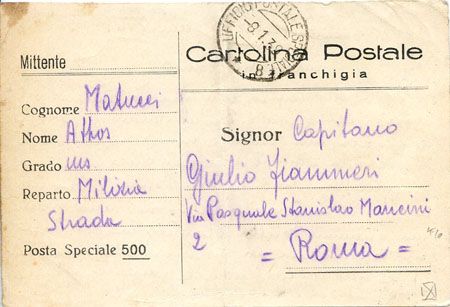 UFFICIO POSTALE SPECIALE
8.1.39
8
Mittente
Cartolina Postale
in franchigia
Cognome Matucci
Nome Athos
Grado ms
Reparto Milizia
Strada
Posta Speciale 500
Signor Capitano
Giulio Fiammeri
Via Pasquale Stanislao Mancini
2
= Roma =